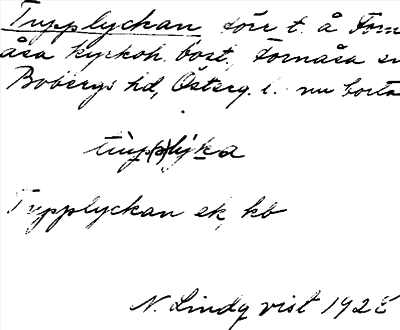 Trypplyckan förr t. å Forn
åsa kyrkoh. bost., Fornåsa sn
Bobergs hd, Österg. l. nu borta
Trypplyckan ek, kb
N. Lindqvist 192